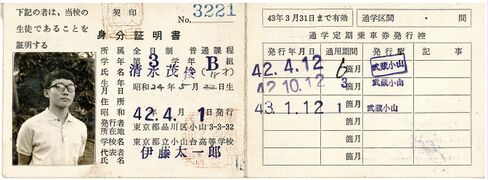 下記の者は、当校の
生徒であることを
証明する
契印
No. 3221
身分証明書
所属 全日制 普通課程
学年 第3学年 B組
氏名 清水茂俊
生年月日 昭和24年5月 日生
昭和 42年4月1日発行
発行者
所在地 東京都品川区小山3-3-32
学校名 東京都立小山台高等学校
代表者
氏名 伊藤太一郎
43年3月31日まで有効 通学区間 ・ 間
通学定期乗車券発行控
発行年月日 通用期間 発行駅 記事
42.4.12 6箇月 武蔵小山
42.10.12 3箇月 武蔵小山
43.1.12 1箇月 武蔵小山
箇月
箇月
箇月